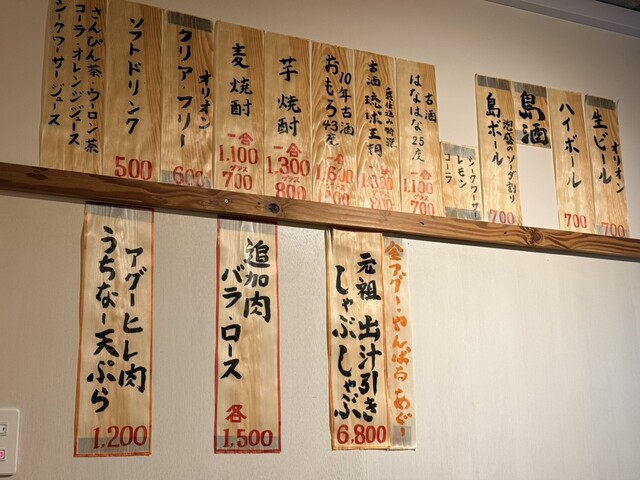 オリオン
生ビール
700
ハイボール
700
島酒
泡盛のソーダ割り
島ボール
700
シークワーサー
レモン
コーラ
古酒
はなはな25度
一合
1.100
グラス
700
古酒 琉球王朝
一合
グラス
800
10年古酒
おもろ43度
一合
グラス
芋焼酎
一合
1.300
グラス
800
麦焼酎
一合
1.100
グラス
700
オリオン
クリア・フリー
600
ソフトドリンク
500
さんぴん茶・ウーロン茶
コーラ・オレンジジュース
シークワーサージュース
金アグー・やんばるあぐー
元祖 出汁引き
しゃぶしゃぶ
6,800
追加肉
バラ・ロース
各
1,500
アグーヒレ肉
うちなー天ぷら
1,200